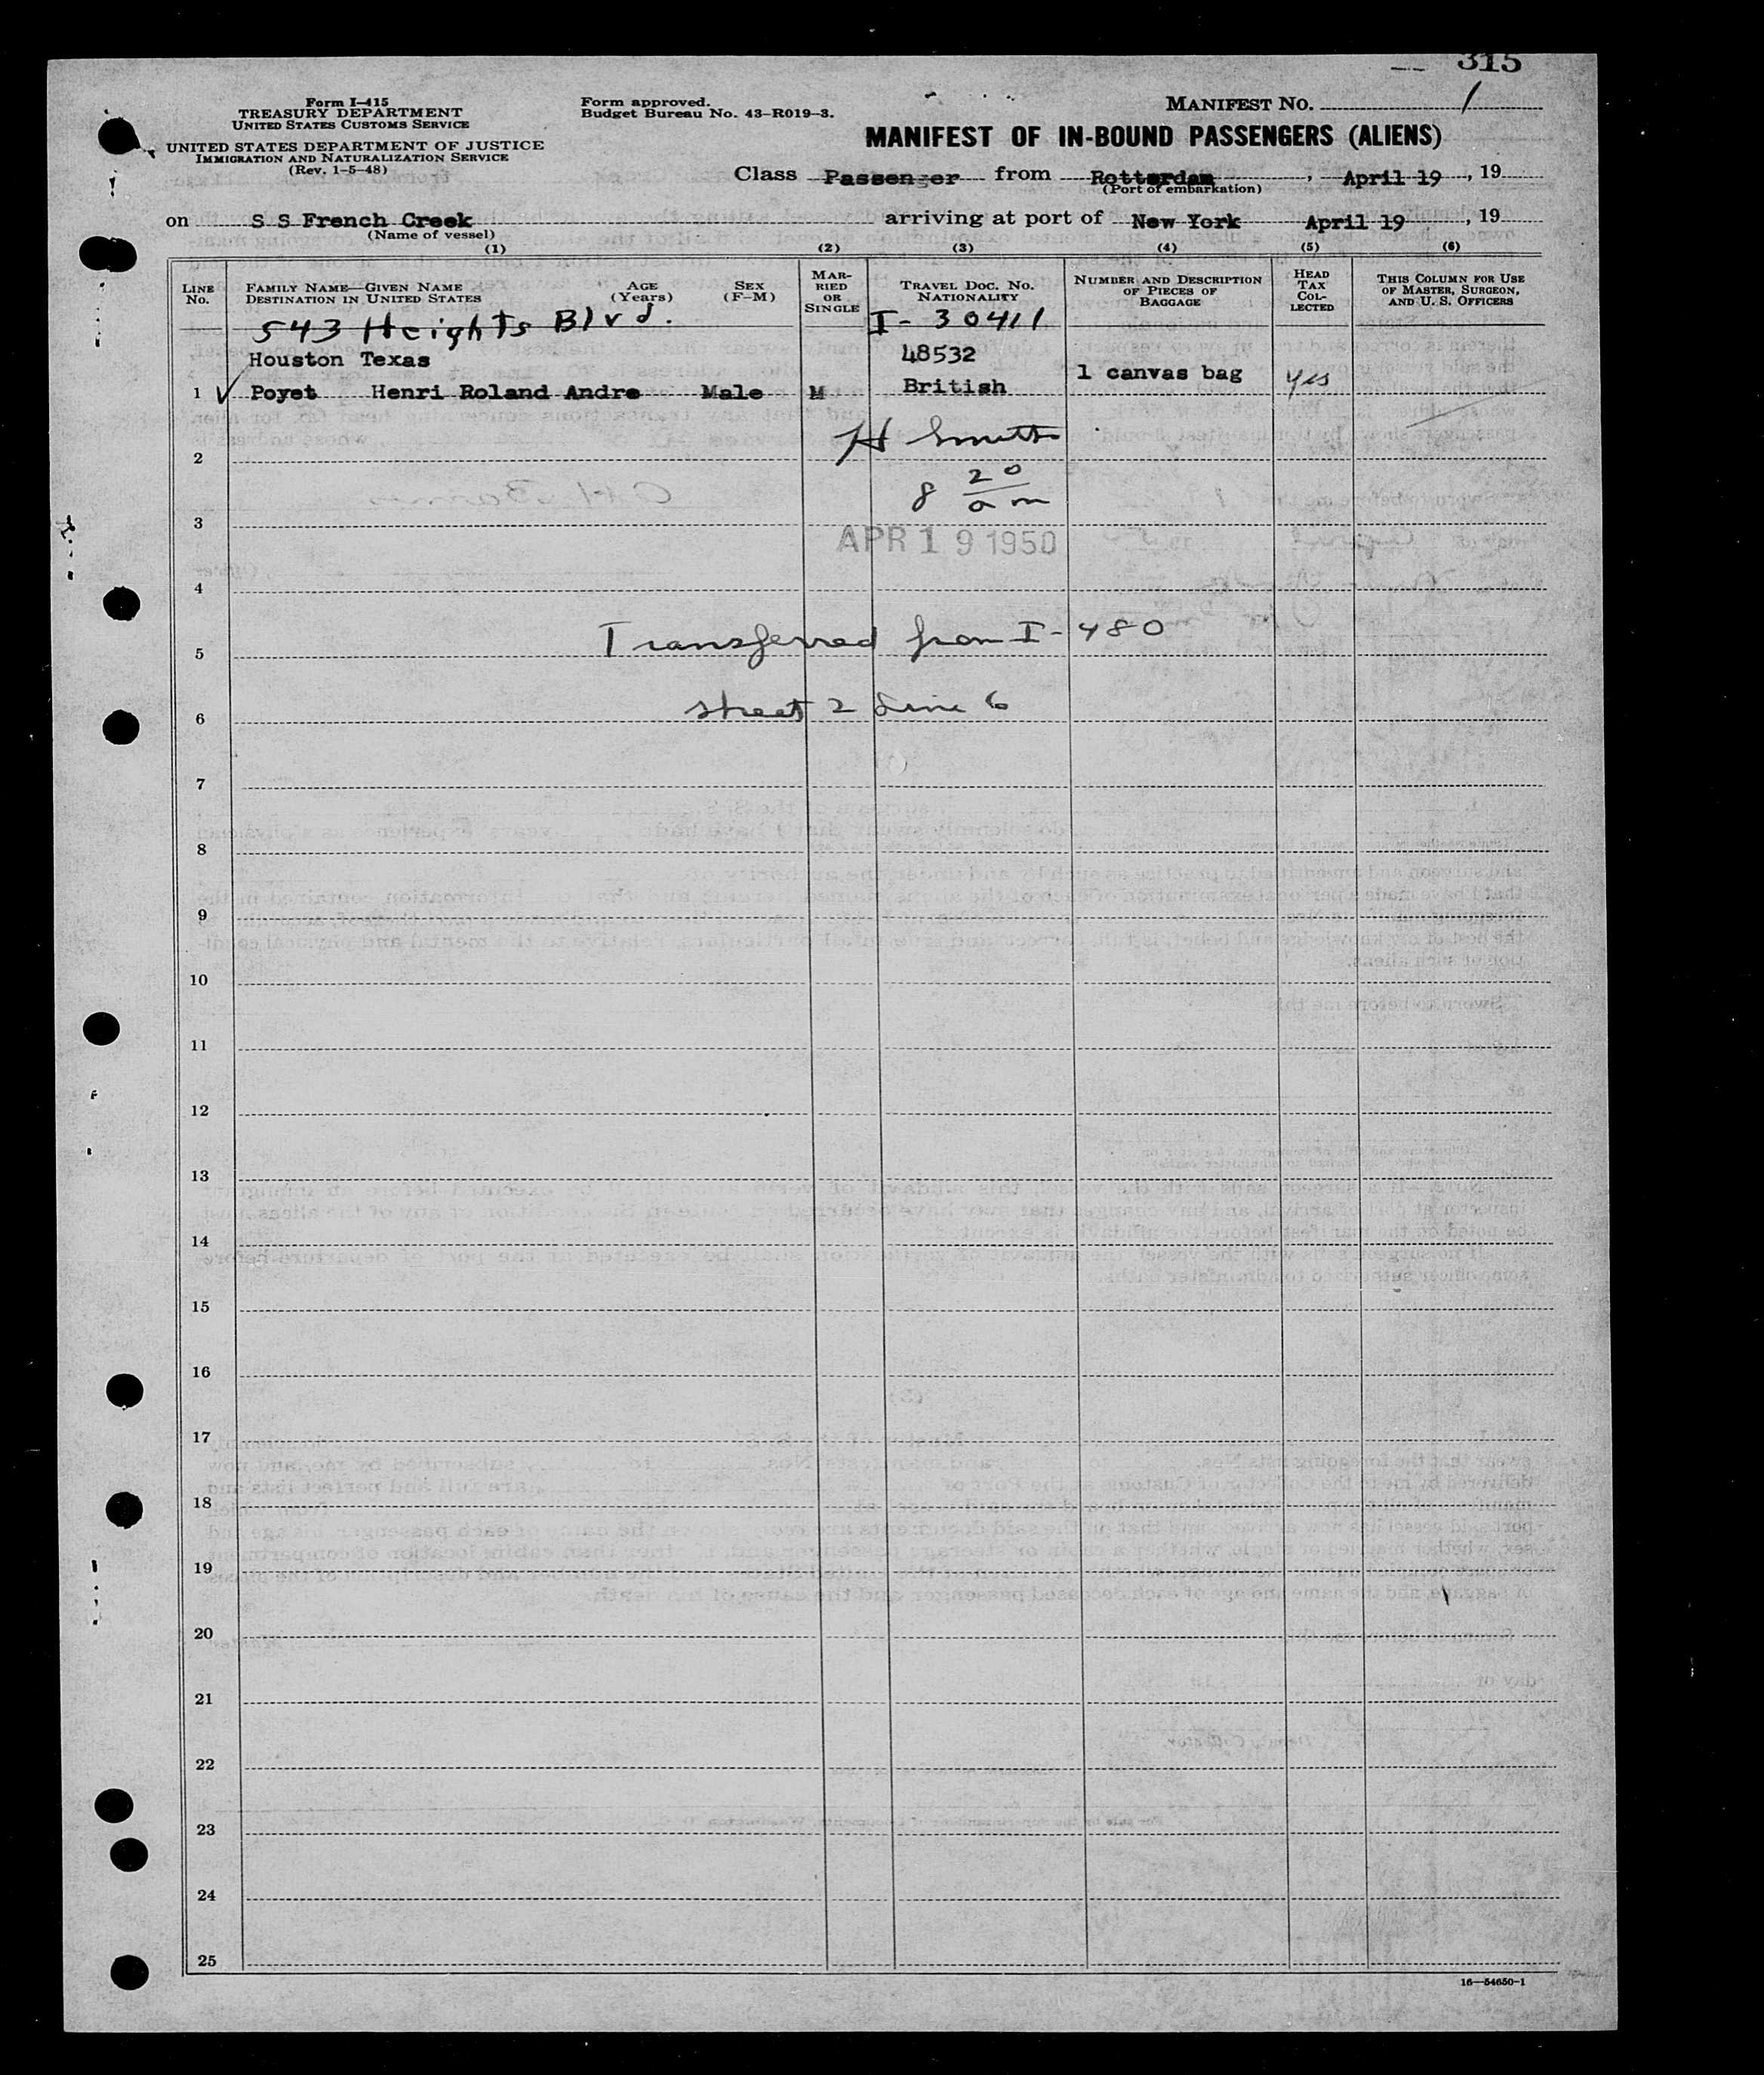 315
Form I-415
TREASURY DEPARTMENT
UNITED STATES CUSTOMS SERVICE
UNITED STATES DEPARTMENT OF JUSTICE
IMMIGRATION AND NATURALIZATION SERVICE
(Rev. 1-5-48)
Form approved.
Budget Bureau No. 43-R019-3.
MANIFEST NO. 1
MANIFEST OF IN-BOUND PASSENGERS (ALIENS)
Class Passenger from Rotterdam, April 19, 19
(Port of embarkation)
on S S French Creek arriving at port of New York April 19, 19
(Name of vessel)
(1) (2) (3) (4) (5) (6)
LINE No.
FAMILY NAME—GIVEN NAME
DESTINATION IN UNITED STATES
AGE (Years)
SEX (F-M)
MARRIED OR SINGLE
TRAVEL DOC. NO. NATIONALITY
NUMBER AND DESCRIPTION OF PIECES OF BAGGAGE
HEAD TAX COLLECTED
THIS COLUMN FOR USE OF MASTER, SURGEON, AND U. S. OFFICERS
543 Heights Blvd. I-30411
Houston Texas 48532
1 ✓ Poyet Henri Roland Andre Male M British 1 canvas bag yes
H Smith
2
8 20 am
3
APR 19 1950
4
Transferred from I-480
5
sheet 2 Line 6
6
7
8
9
10
11
12
13
14
15
16
17
18
19
20
21
22
23
24
25
16—54650-1